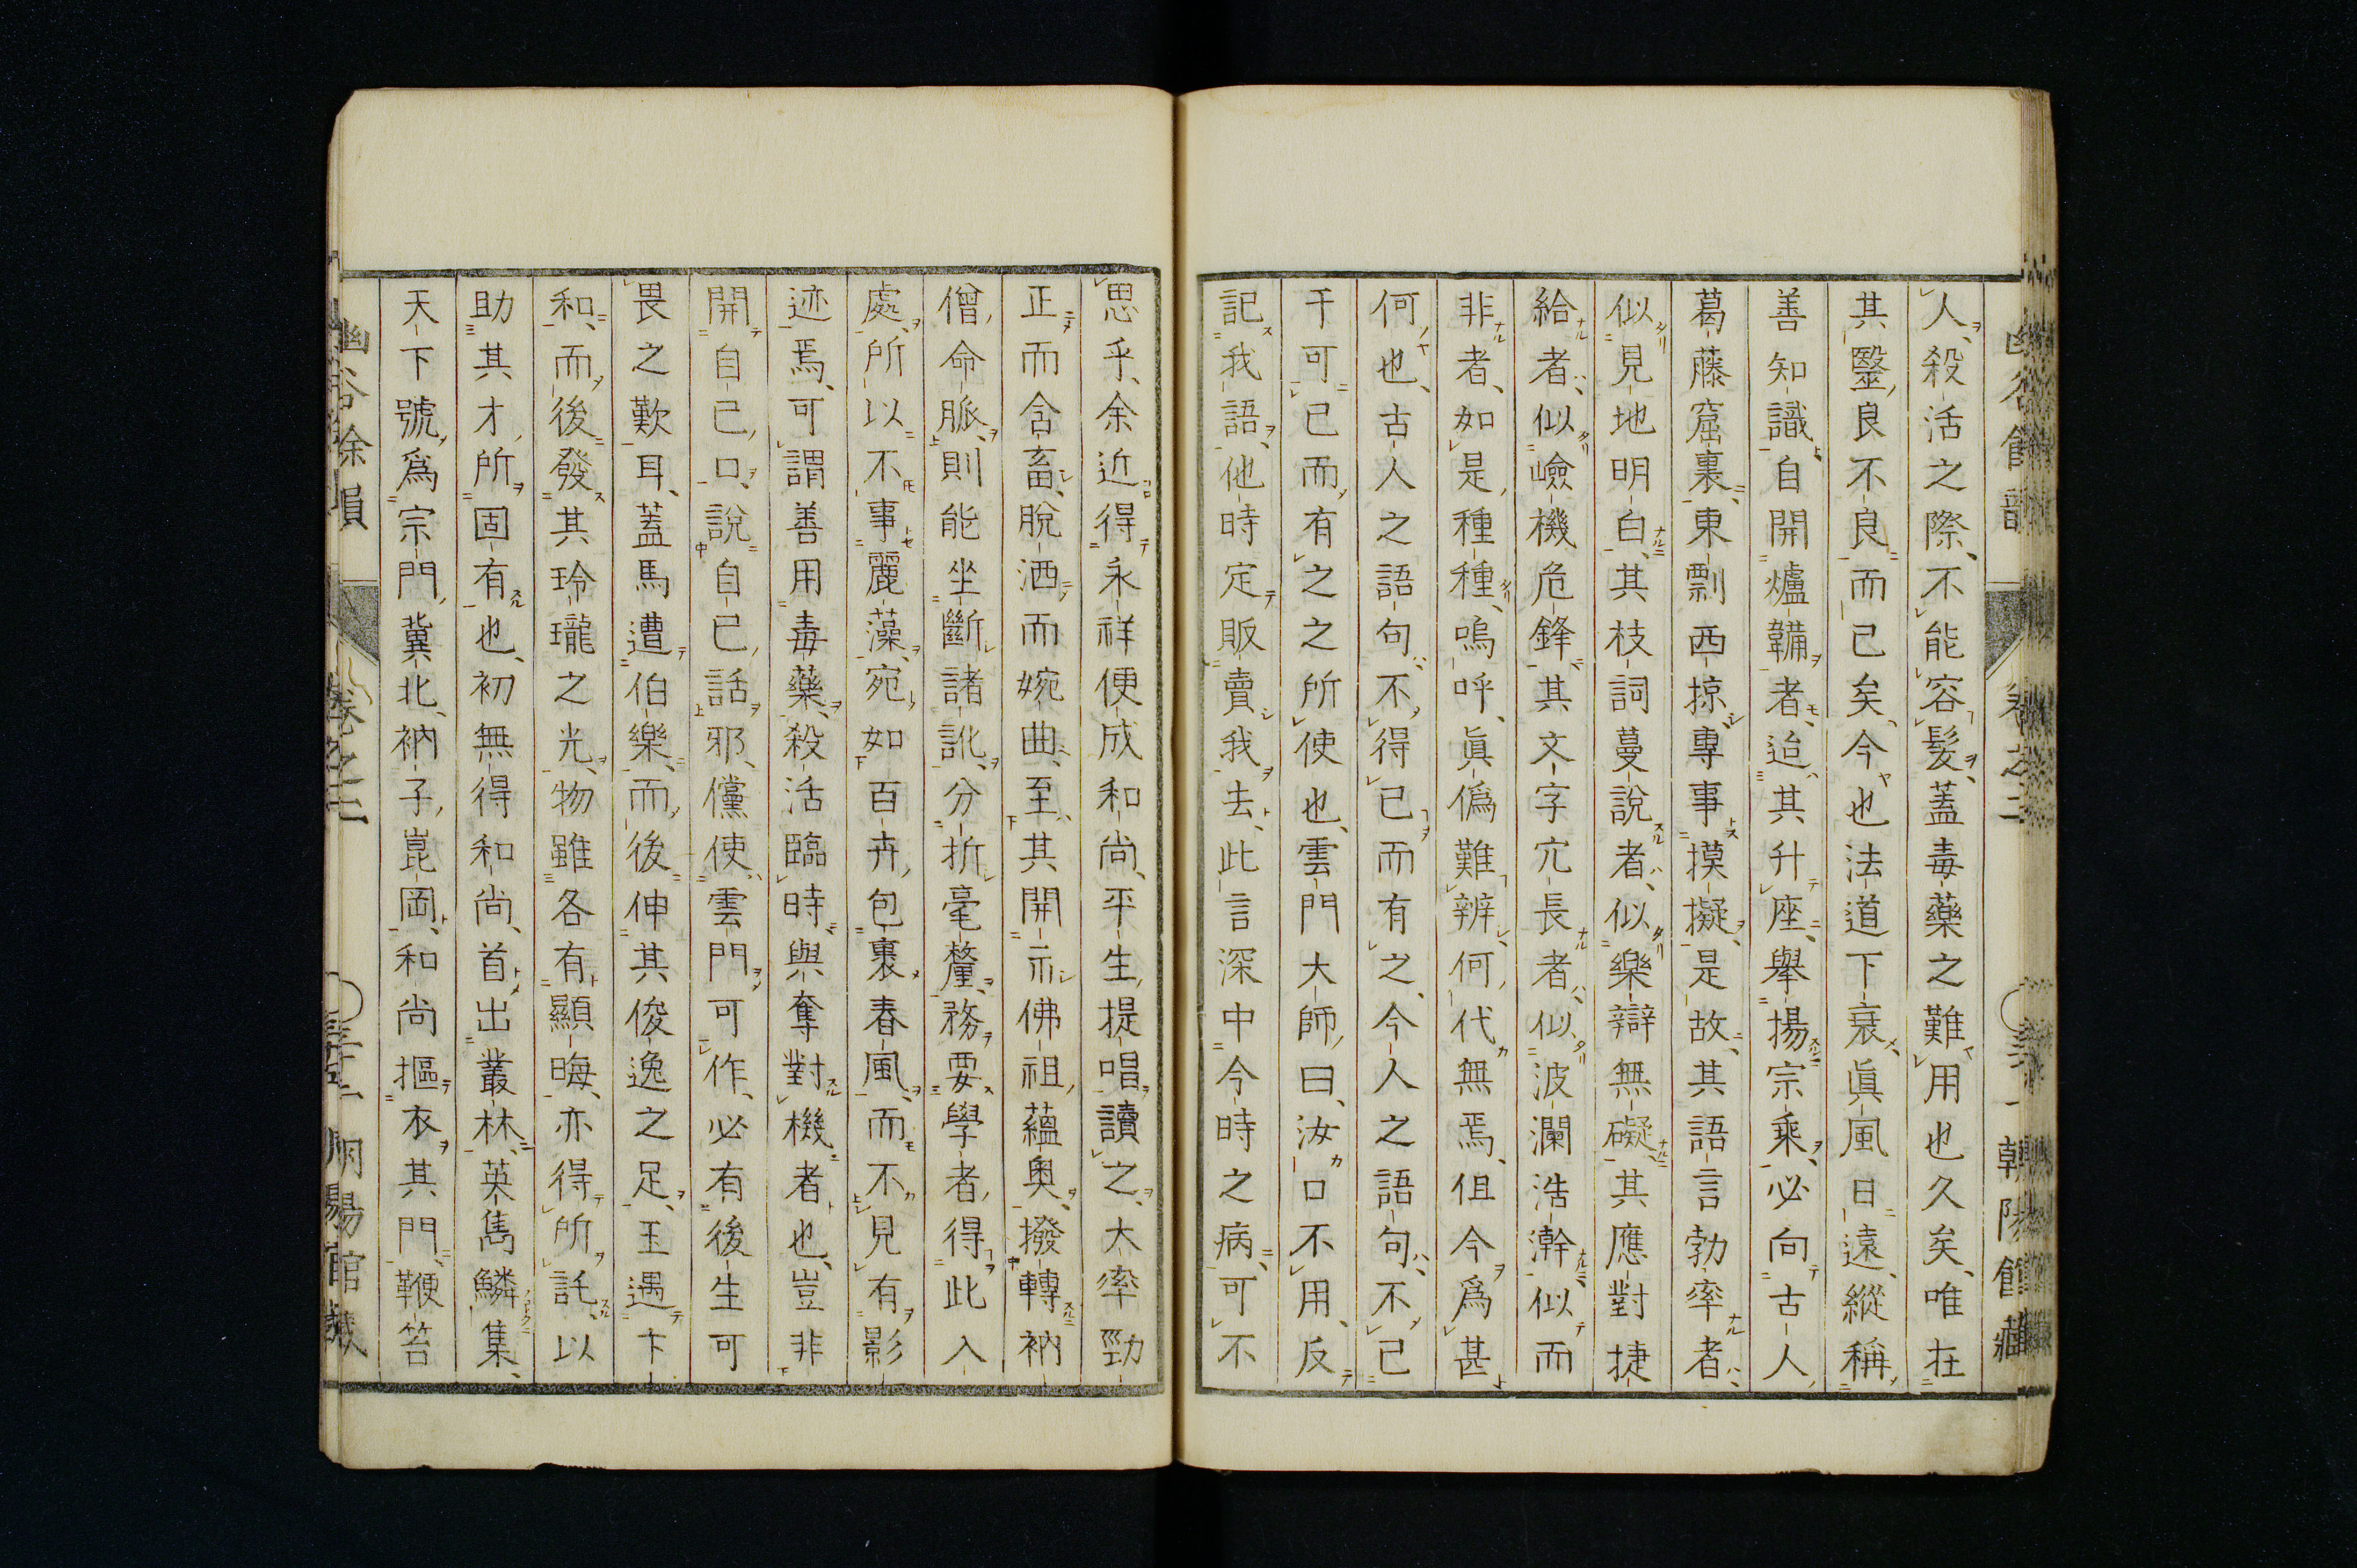 人殺活之際不能容髮蓋毒藥之難用也久矣唯在
其毉良不良而已矣今也法道下衰眞風日遠縱稱
善知識自開爐鞴者迨其升座擧揚宗乘必向古人
葛藤窟裏東剽西掠專事摸擬是故其語言勃率者
似見地明白其枝詞蔓說者似樂辯無礙其應對捷
給者似嶮機危鋒其文字冗長者似波瀾浩瀚似而
非者如是種種嗚呼眞僞難辨何代無焉但今爲甚
何也古人之語句不得已而有之今人之語句不已
于可已而有之之所使也雲門大師曰汝口不用反
記我語他時定販賣我去此言深中今時之病可不
思乎余近得永祥便成和尚平生提唱讀之大率勁
正而含畜脫洒而婉曲至其開示佛祖蘊奧撥轉衲
僧命脈則能坐斷諸訛分折毫釐務要學者得此入
處所以不事麗藻宛如百卉包裹春風而不見有影
迹焉可謂善用毒藥殺活臨時與奪對機者也豈非
開自己口說自己話邪儻使雲門可作必有後生可
畏之歎耳蓋馬遭伯樂而後伸其俊逸之足玉遇卞
和而後發其玲瓏之光物雖各有顯晦亦得所託以
助其才所固有也初無得和尚首出叢林英雋鱗集
天下號爲宗門冀北衲子崑岡和尚摳衣其門鞭笞
幽谷餘韻 卷之二